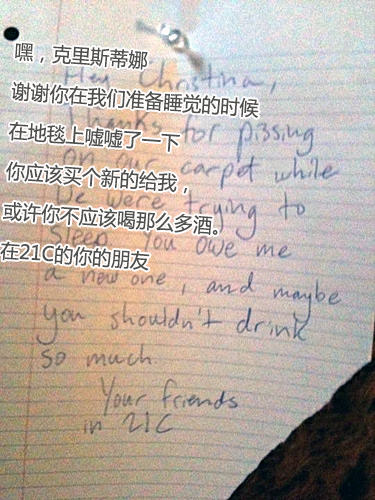 嘿，克里斯蒂娜
Hey Christina,
谢谢你在我们准备睡觉的时候
Thanks for pissing
在地毯上嘘嘘了一下
on our carpet while
你应该买个新的给我，
we were trying to
或许你不应该喝那么多酒。
sleep. You owe me
在21C的你的朋友
a new one, and maybe
you shouldn't drink
so much.
Your friends
in 21C